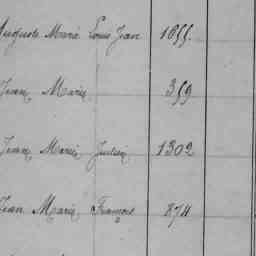 Auguste Marie Louis Jean 1655.
Jean Marie 359
Jean Marie Julien 1302
Jean Marie François 874